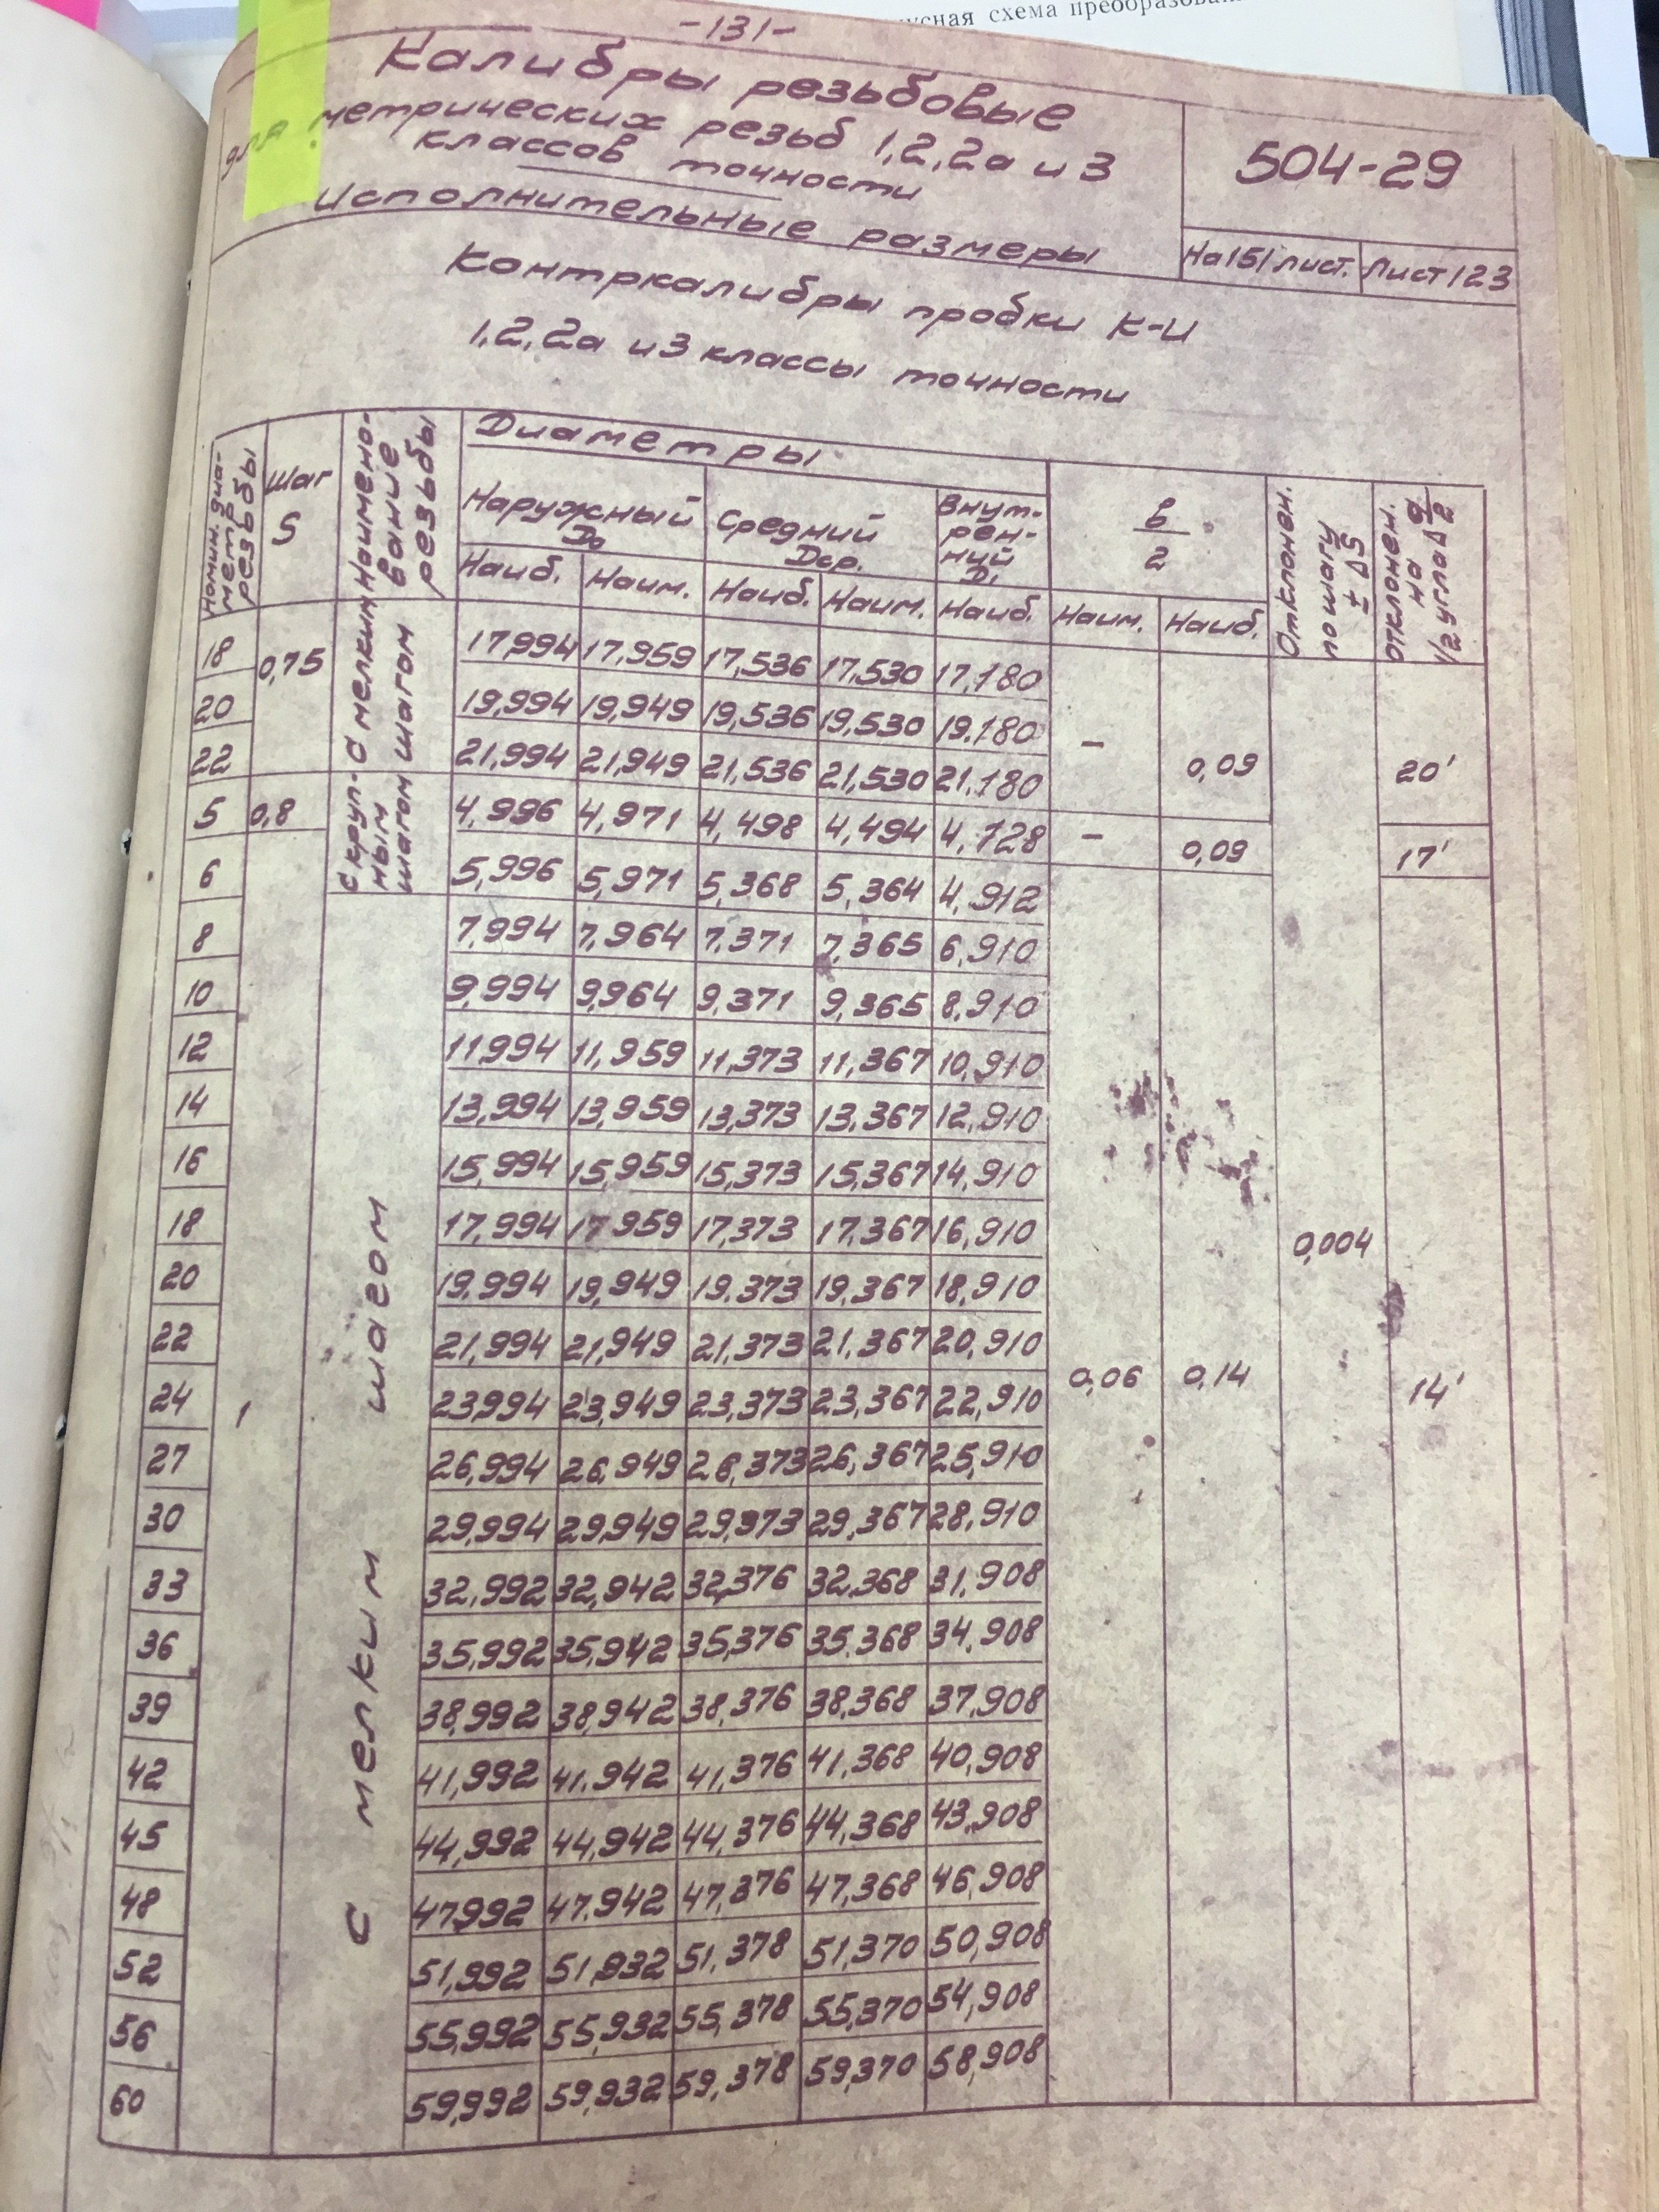 усная схема преобразован
-131-
Калибры резьбовые
для метрических резьб 1,2,2а и 3
классов точности
Исполнительные размеры
504-29
На 151 лист. Лист 123
Контркалибры пробки К-И
1,2,2а и 3 классы точности
Номин. диаметр резьбы
Шаг S
Наименование резьбы
Диаметры
Наружный Do
Средний Dср.
Внутренний D1
в/2
Отклонен. по шагу ± ΔS
отклонен. на 1/2 угла Δ α/2
Наиб. Наим. Наиб. Наим. Наиб. Наим. Наиб.
С мелким шагом
18 0,75 17,994 17,959 17,536 17,530 17,180
20 19,994 19,949 19,536 19,530 19.180
22 21,994 21,949 21,536 21,530 21.180 – 0,09 20'
С крупным шагом
5 0,8 4,996 4,971 4,498 4,494 4,128 – 0,09 17'
6 5,996 5,971 5,368 5,364 4,912
8 7,994 7,964 7.371 7,365 6,910
10 9,994 9,964 9,371 9,365 8,910
12 11,994 11,959 11,373 11,367 10,910
14 13,994 13,959 13,373 13,367 12,910
16 15,994 15,959 15,373 15,367 14,910
18 17,994 17,959 17,373 17,367 16,910 0,004
20 19,994 19,949 19.373 19,367 18,910
22 21,994 21,949 21,373 21,367 20,910
24 1 23,994 23,949 23,373 23,367 22,910 0,06 0,14 14'
27 26,994 26,949 26,373 26,367 25,910
30 29,994 29,949 29,373 29,367 28,910
33 32,992 32,942 32,376 32,368 31,908
36 35,992 35,942 35,376 35.368 34,908
39 38,992 38,942 38,376 38,368 37,908
42 41,992 41.942 41,376 41,368 40,908
45 44,992 44,942 44,376 44,368 43,908
48 47,992 47.942 47,376 47,368 46,908
52 51,992 51,932 51,378 51,370 50,908
56 55,992 55,932 55,378 55,370 54,908
60 59,992 59,932 59,378 59,370 58,908
с мелким шагом